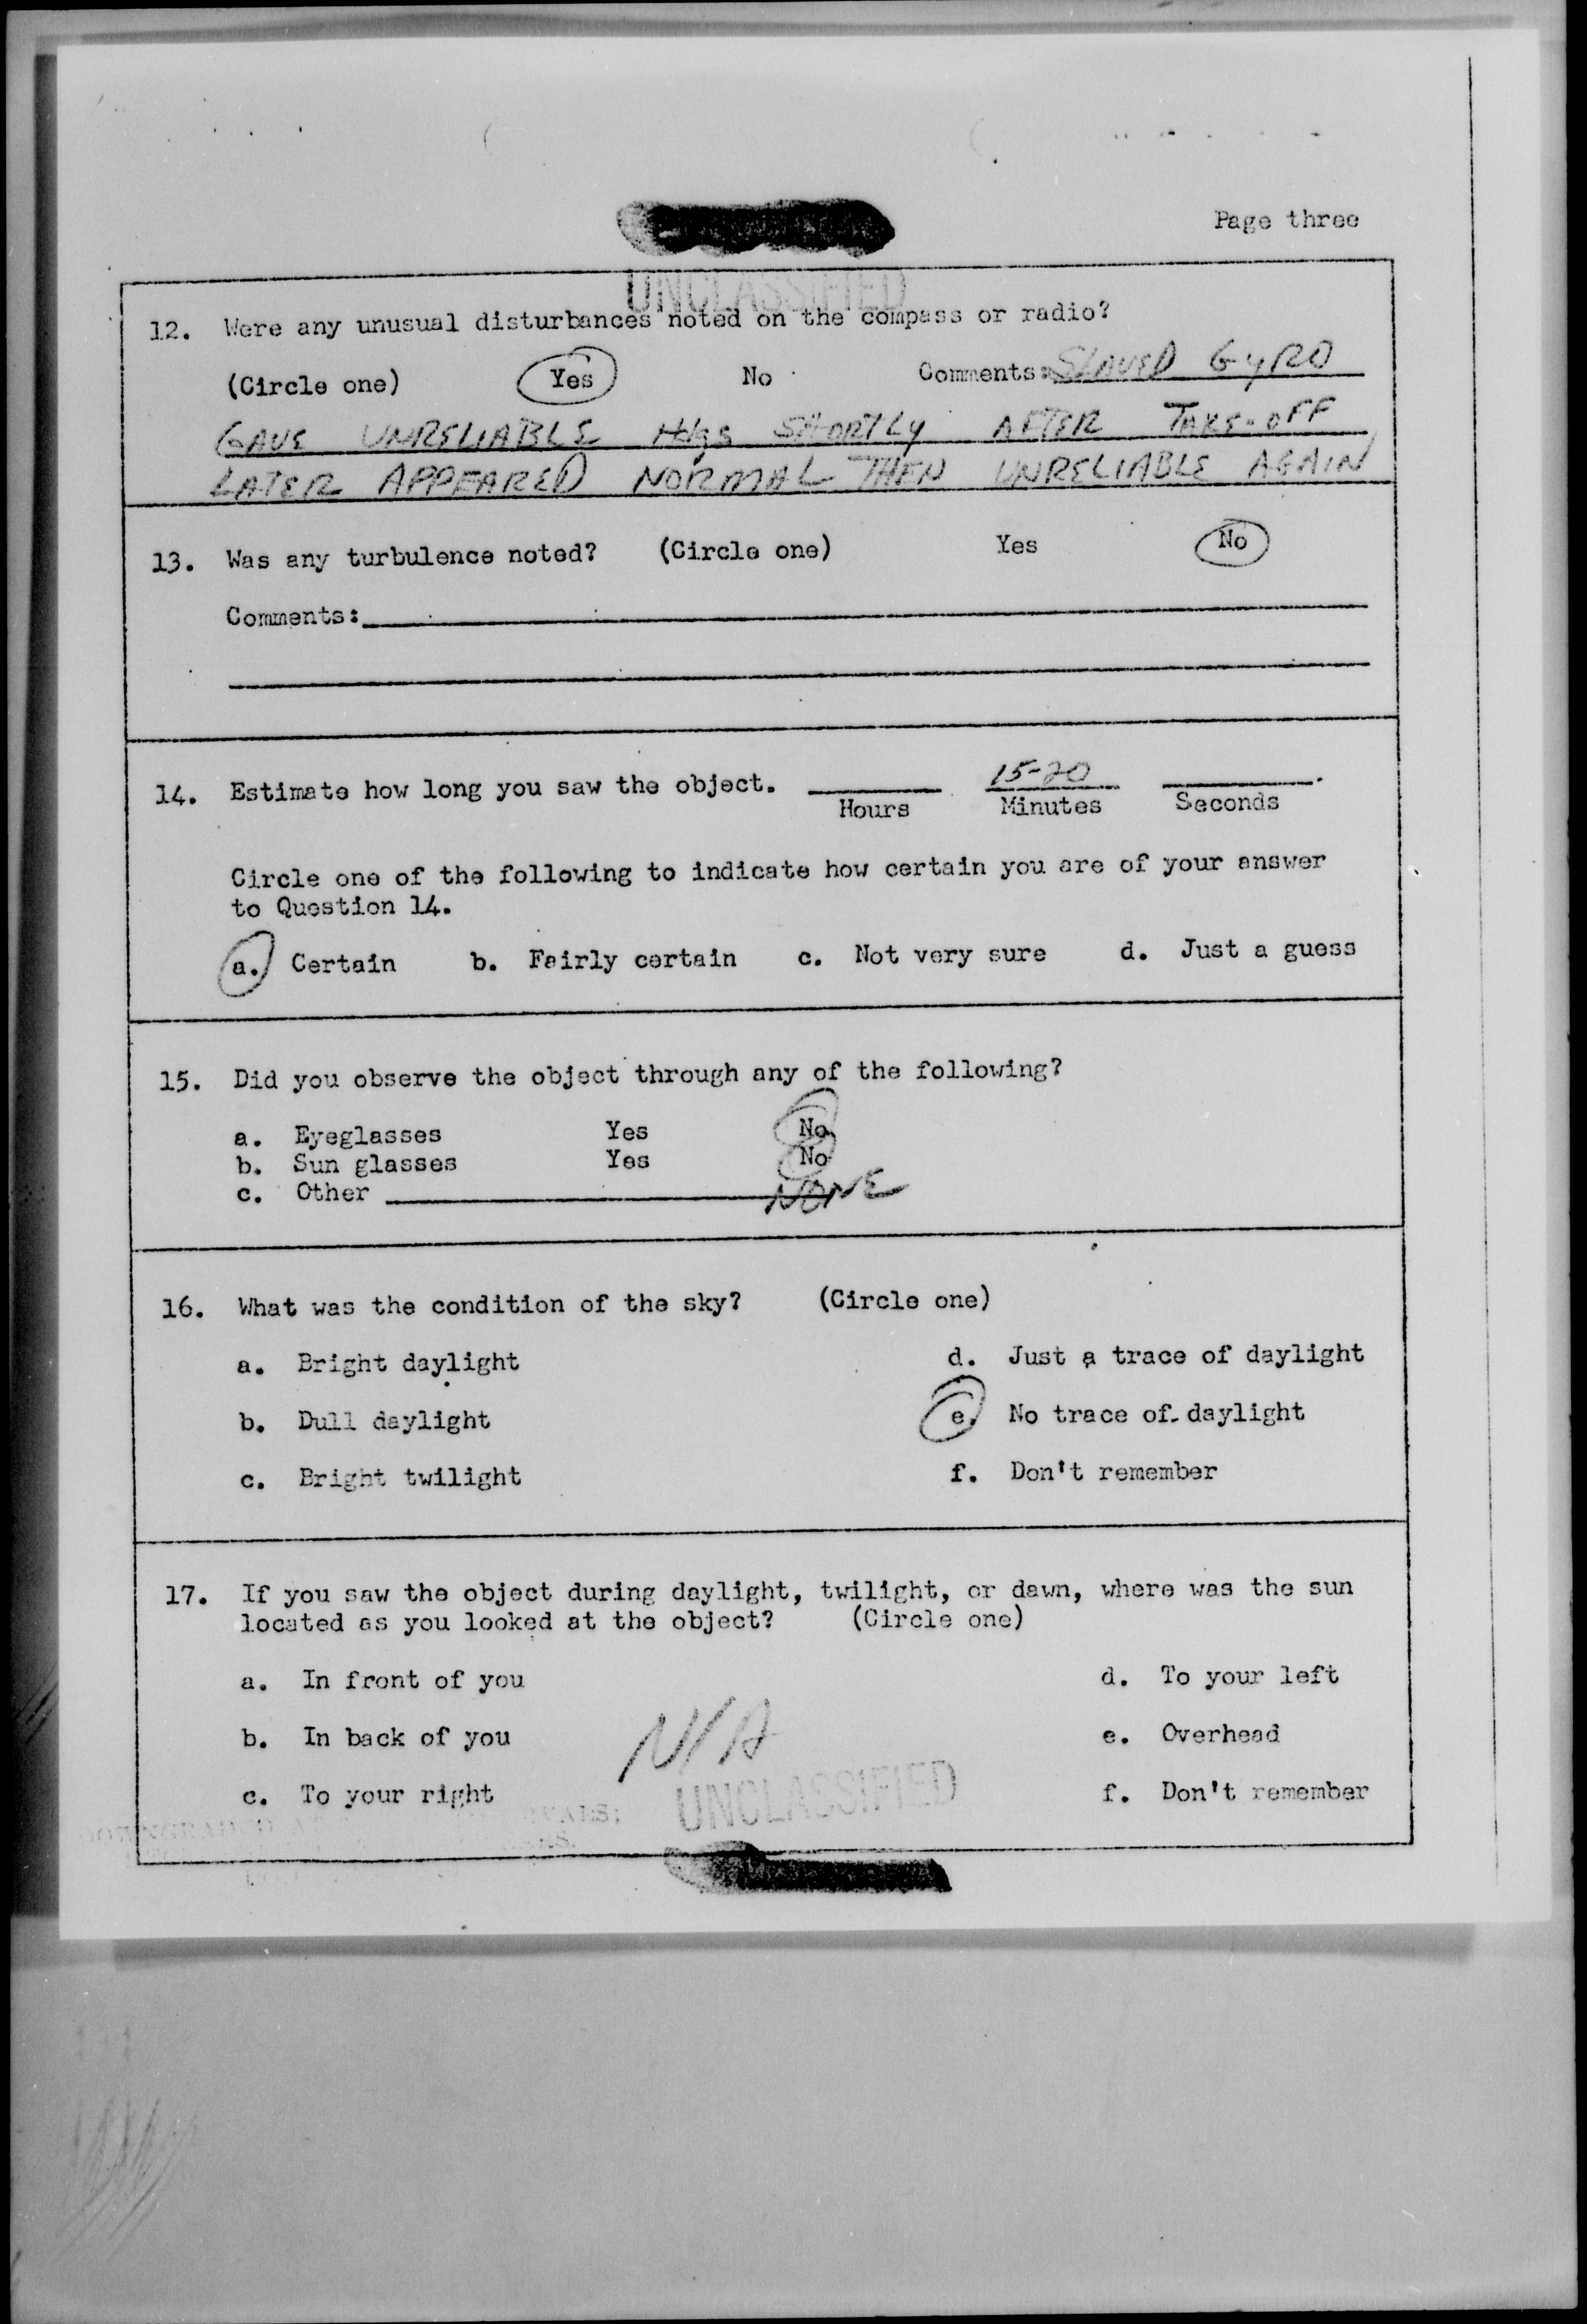 Page three
UNCLASSIFIED
12. Were any unusual disturbances noted on the compass or radio?
(Circle one) Yes No Comments: SLAVED GYRO
GAVE UNRELIABLE Hdgs SHORTLY AFTER TAKE-OFF
LATER APPEARED NORMAL THEN UNRELIABLE AGAIN
13. Was any turbulence noted? (Circle one) Yes No
Comments:
14. Estimate how long you saw the object. 15-20
Hours Minutes Seconds
Circle one of the following to indicate how certain you are of your answer
to Question 14.
a. Certain b. Fairly certain c. Not very sure d. Just a guess
15. Did you observe the object through any of the following?
a. Eyeglasses Yes No
b. Sun glasses Yes No
c. Other NONE
16. What was the condition of the sky? (Circle one)
a. Bright daylight d. Just a trace of daylight
b. Dull daylight e. No trace of daylight
c. Bright twilight f. Don't remember
17. If you saw the object during daylight, twilight, or dawn, where was the sun
located as you looked at the object? (Circle one)
a. In front of you d. To your left
b. In back of you e. Overhead
N/A
c. To your right f. Don't remember
UNCLASSIFIED